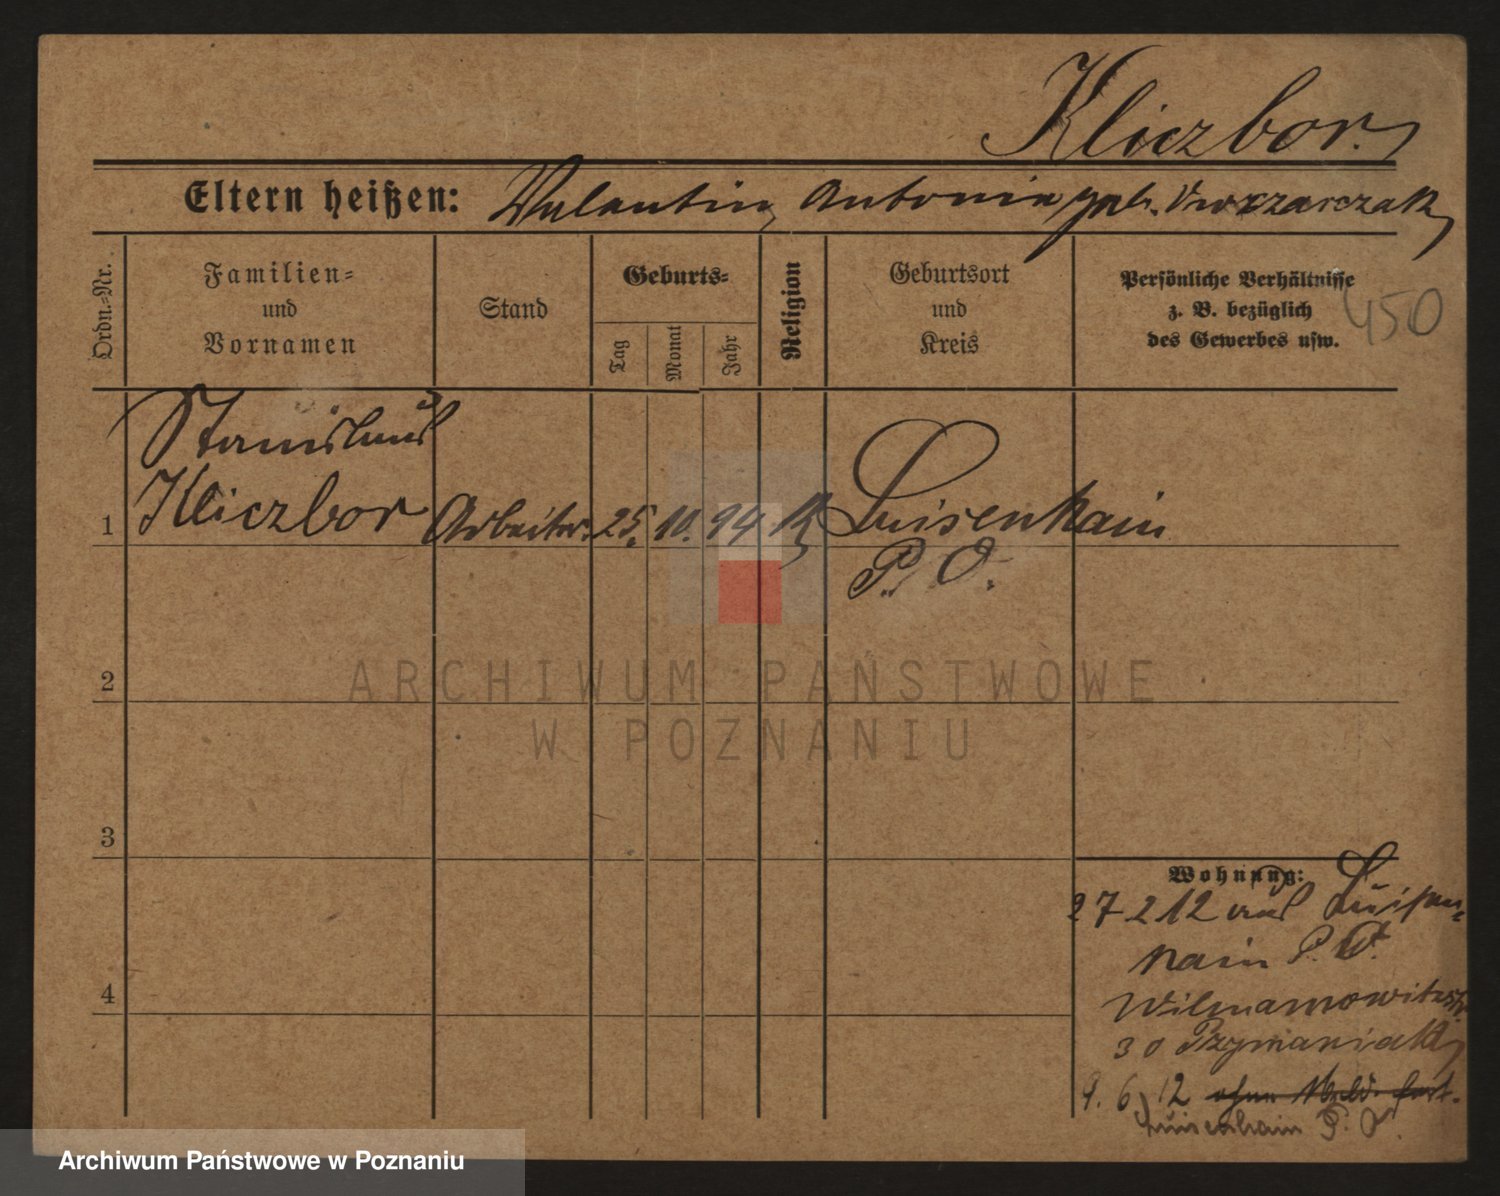 Kliczbor.
Eltern heißen: Valentin, Antonie geb.
Ordn.=Nr.
Familien=
und
Vornamen
Stand
Geburts=
Tag
Monat
Jahr
Religion
Geburtsort
und
Kreis
Persönliche Verhältnisse
z. B. bezüglich
des Gewerbes usw.
450
Stanislaus
1 Kliczbor Arbeiter. 25. 10. 94 K Luisenhain
P. O.
2
3
4
Wohnung:
27 2 12 aus Luisen=
hain P. O.
Wilmamowitzstr
30 Przymaniak
9. 6. 12 ohne Meld. fort.
Luisenhain P. O.
ARCHIWUM PAŃSTWOWE
W POZNANIU
Archiwum Państwowe w Poznaniu